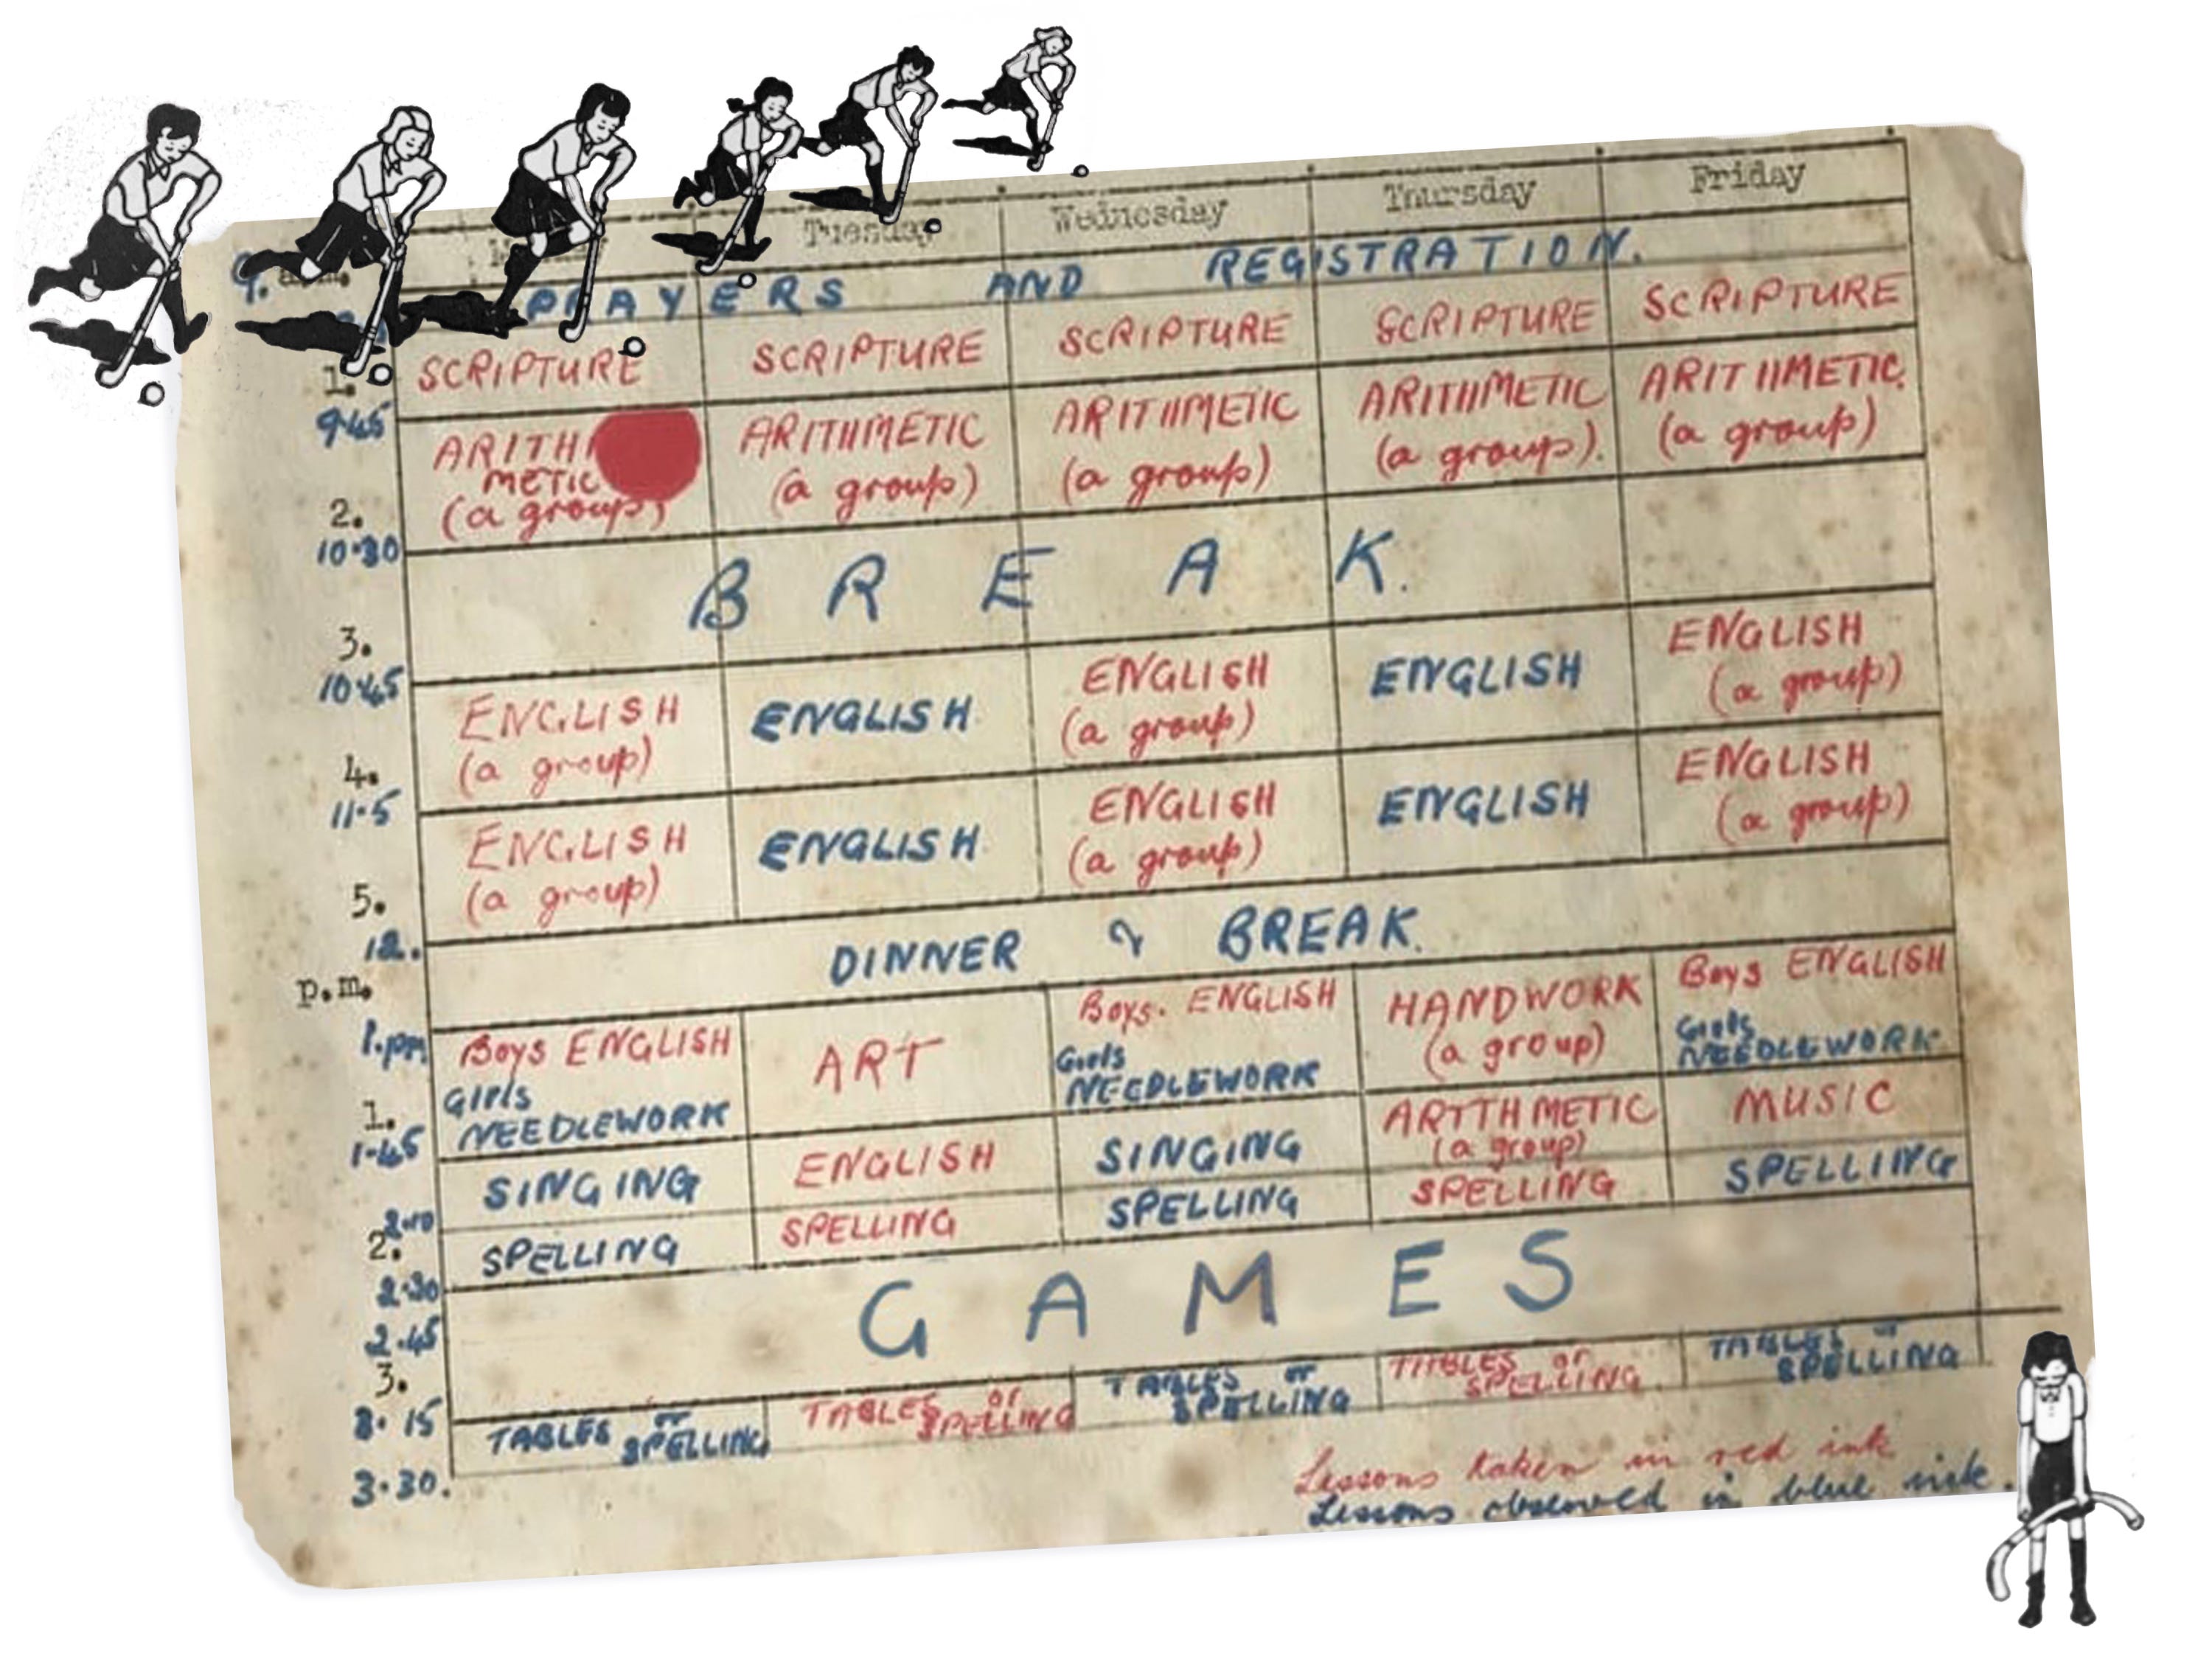 Tuesday Wednesday Thursday Friday
9. a.m. PRAYERS AND REGISTRATION.
1. SCRIPTURE SCRIPTURE SCRIPTURE SCRIPTURE SCRIPTURE
9.45
ARITH ARITHMETIC ARITHMETIC ARITHMETIC ARITHMETIC.
METIC (a group) (a group) (a group). (a group)
(a group)
2.
10.30
BREAK.
3.
10.45
ENGLISH ENGLISH ENGLISH ENGLISH ENGLISH
(a group) (a group) (a group)
4.
11.5
ENGLISH ENGLISH ENGLISH ENGLISH ENGLISH
(a group) (a group) (a group)
5.
12.
DINNER & BREAK.
p.m.
1.pm
Boys ENGLISH ART Boys. ENGLISH HANDWORK Boys ENGLISH
Girls Girls (a group) Girls
NEEDLEWORK NEEDLEWORK NEEDLEWORK
1.
1.45
SINGING ENGLISH SINGING ARITHMETIC MUSIC
(a group)
2.10
SPELLING SPELLING SPELLING SPELLING SPELLING
2.
2.30
GAMES
2.45
3.
3.15
TABLES or TABLES or TABLES or TABLES or TABLES or
SPELLING SPELLING SPELLING SPELLING SPELLING
3.30.
Lessons taken in red ink
Lessons observed in blue ink.